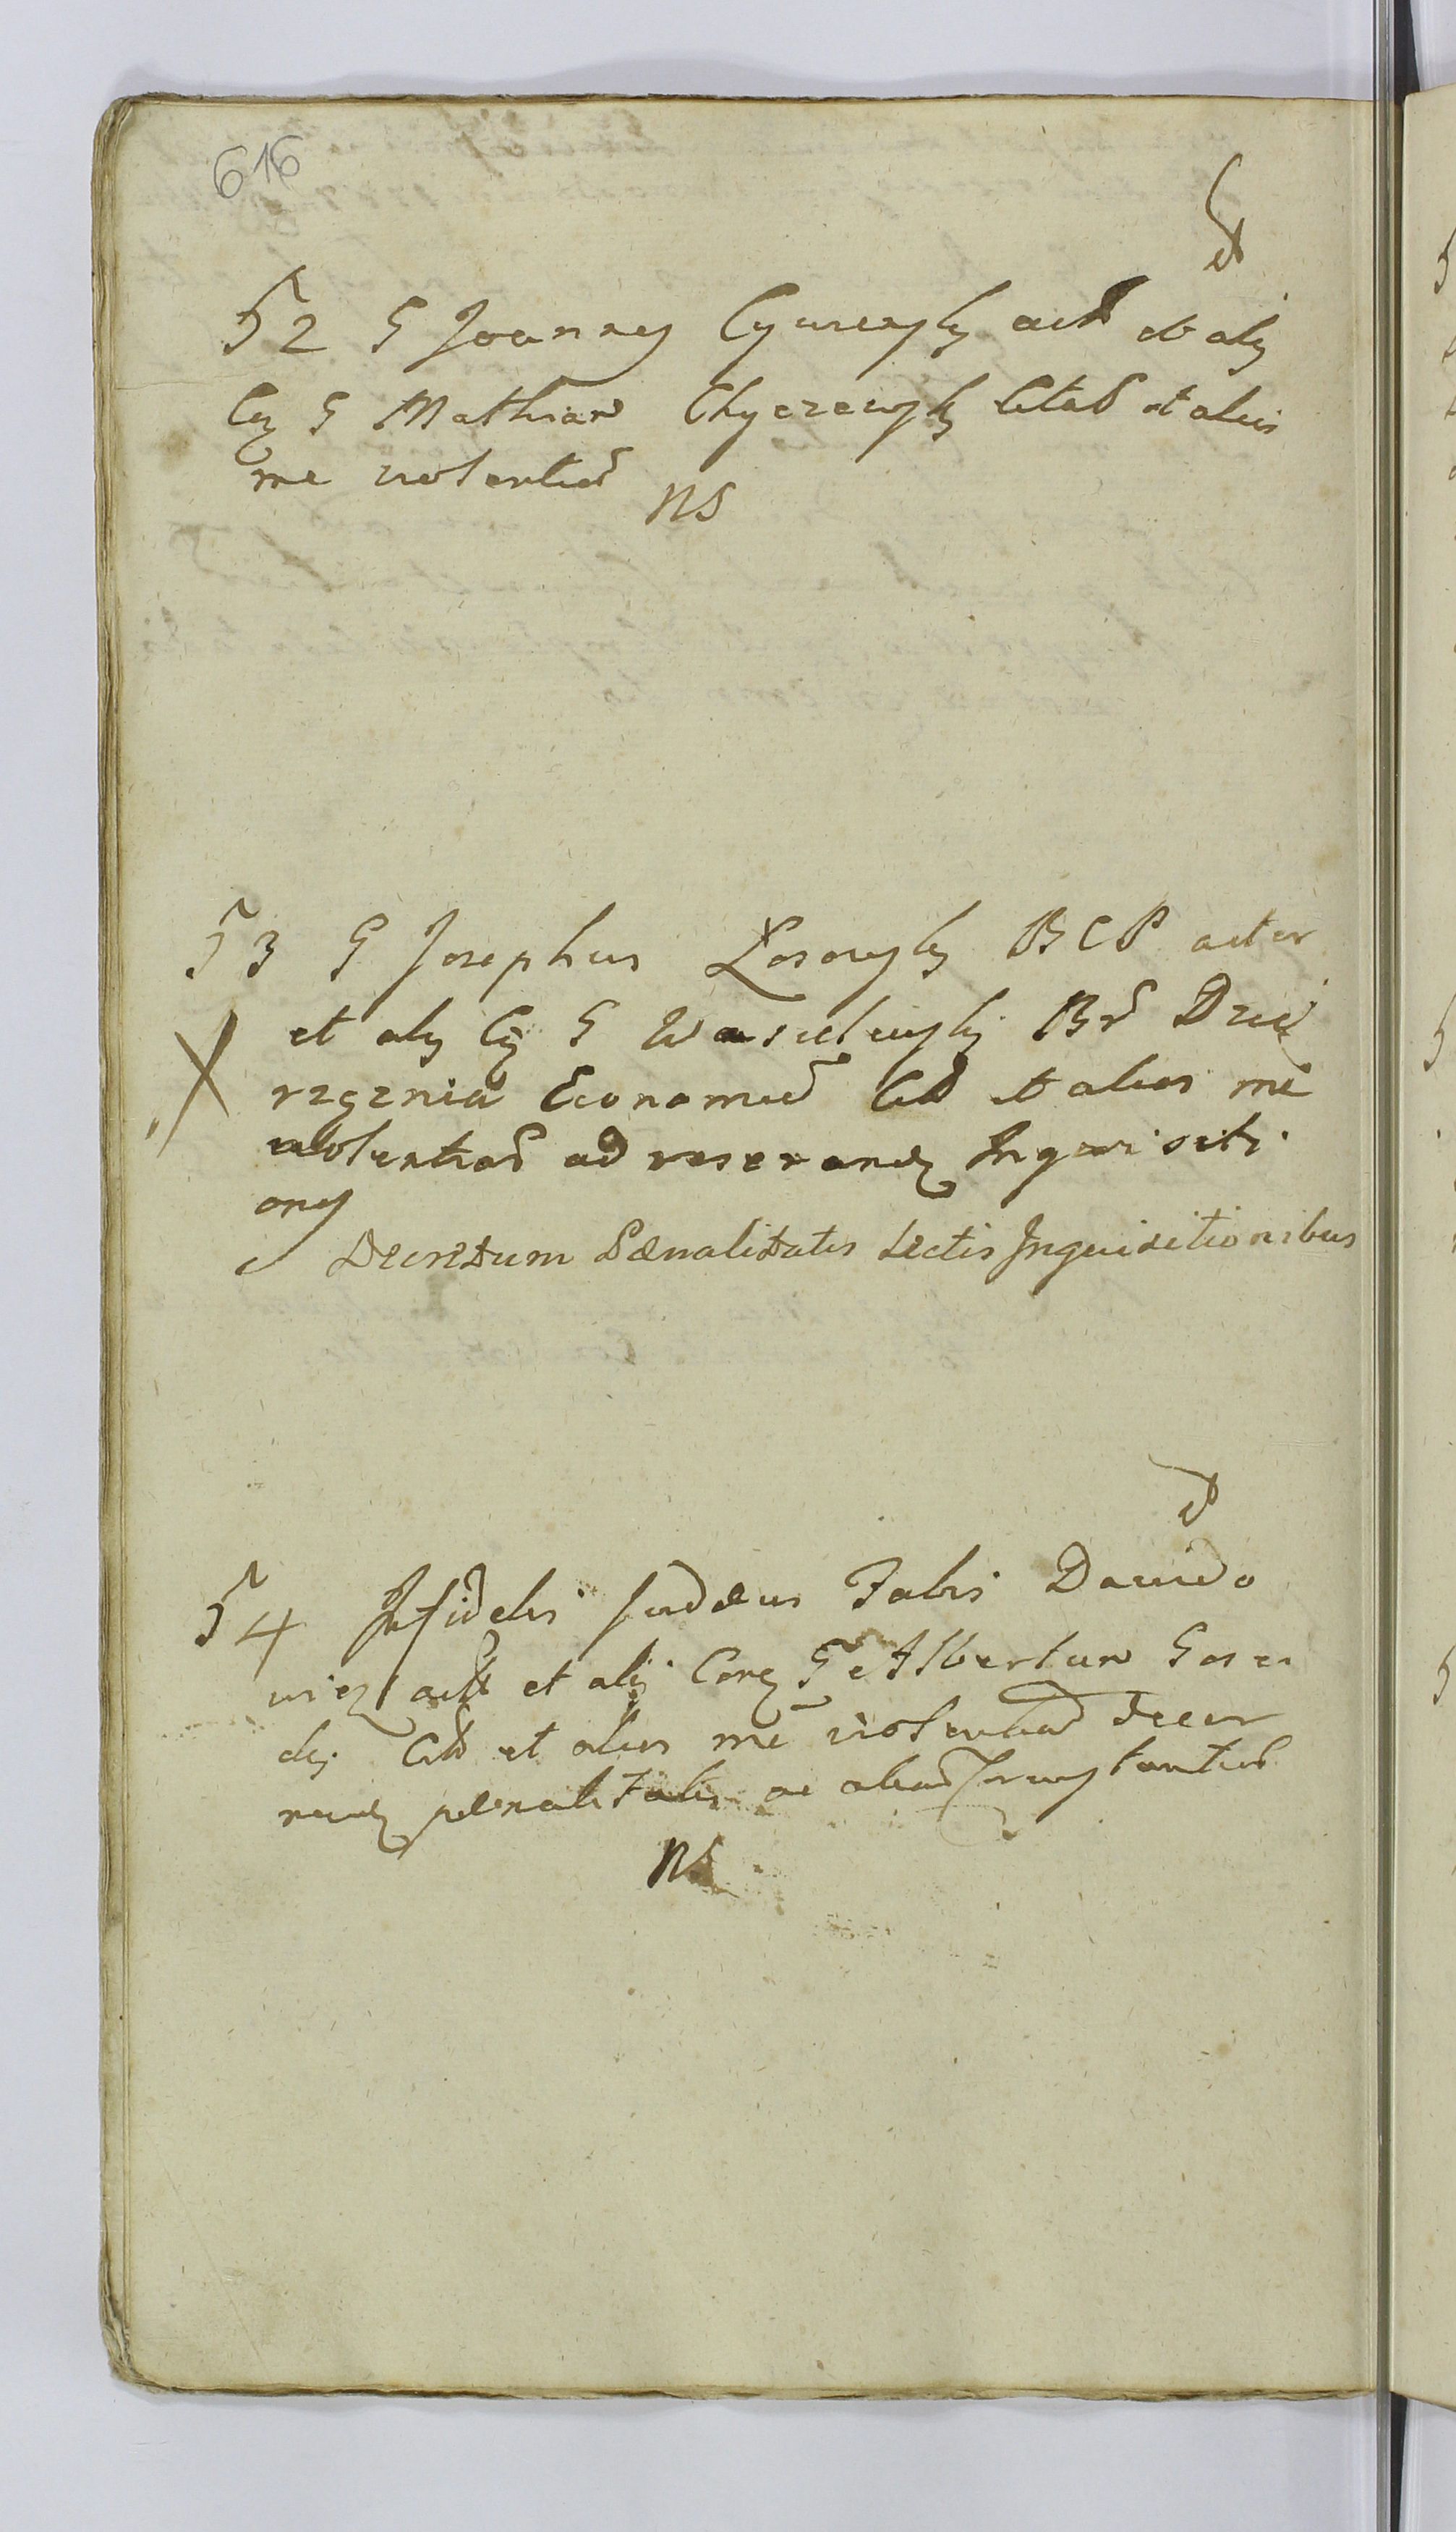 616
et
52 G Joannes Cywinsky act et aly
Cq G Mathiam Chyczewsky Citat et alios
me violentiar
NS
53 G Josephus Łosowsky BCP actor
et aly Cq G Wasilewsky Br Dzie
rzgznia Economu Cit et alios me
violentiar ad reserand Inquisiti
ones
Decretum Pœnalitatis Lectis Inquisitionibus
et
54 Infidelis Judæus Fabis Dawido
wicz act et aly Conq G Albertum
Cit et alios me violentiar Decer
nend pœnalitatis ac aliar
NS